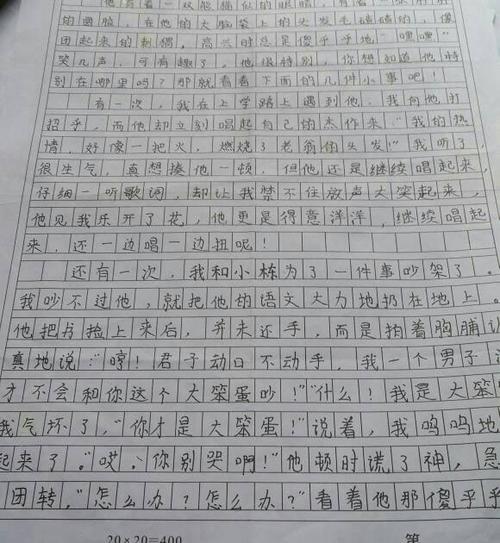 他有着一双熊猫似的眼睛，有着一张胖胖
的圆脸，在他的大脑袋上的头发毛碴碴的，像
团起来的刺猬，高兴时总是傻乎乎地"嘿嘿"
笑几声，可有趣了，他很特别，你想知道他特
别在哪里吗？那就看看下面的几件小事吧！
有一次，我在上学路上遇到他，我向他打
招乎，而他却立刻唱起自己的杰作来："我的热
情，好像一把火，燃烧了老翁的头发！"我听了，
很生气，真想揍他一顿，但他还是继续唱起来，
仔细一听歌词，却让我禁不住放声大笑起来，
他见我乐开了花，他更是得意洋洋，继续唱起
来，还一边唱一边扭呢！
还有一次，我和小栋为了一件事吵架了。
我吵不过他，就把他的语文大力地扔在地上。
他把书捡上来后，并未还手，而是拍着胸脯认
真地说："哼！君子动口不动手，我一个男子
才不会和你这个大笨蛋吵！""什么！我是大笨
我气坏了，"你才是大笨蛋！"说着，我呜呜地
起来了。"哎，你别哭啊！"他顿时谎了神，急
团转，"怎么办？怎么办？"看着他那傻乎乎
20×20=400
第